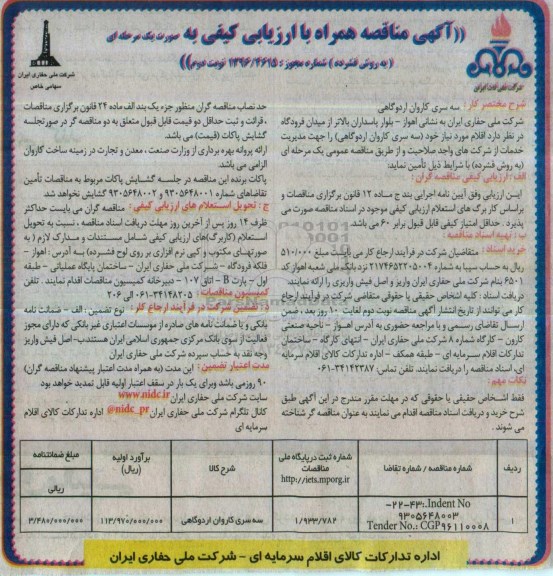 ((آگهی مناقصه همراه با ارزیابی کیفی به صورت یک مرحله ای
(به روش فشرده) شماره مجوز: ۱۳۹۶/۴۶۱۵ نوبت دوم))
شرکت ملی نفت ایران
شرکت ملی حفاری ایران
سهامی خاص
شرح مختصر کار: سه سری کاروان اردوگاهی
شرکت ملی حفاری ایران به نشانی اهواز - بلوار پاسداران بالاتر از میدان فرودگاه
در نظر دارد اقلام مورد نیاز خود (سه سری کاروان اردوگاهی) را جهت مدیریت
خدمات از شرکت های واجد صلاحیت و از طریق مناقصه عمومی یک مرحله ای
(به روش فشرده) با شرایط ذیل تأمین نماید:
الف: ارزیابی کیفی مناقصه گران:
این ارزیابی وفق آیین نامه اجرایی بند ج ماده ۱۲ قانون برگزاری مناقصات و
براساس کار برگ های استعلام ارزیابی کیفی موجود در اسناد مناقصه صورت می
پذیرد. حداقل امتیاز کیفی قابل قبول برابر ۶۰ می باشد.
ب: تهیه اسناد مناقصه:
خرید اسناد: متقاضیان شرکت در فرآیند ارجاع کار می بایست مبلغ ۵۱۰/۰۰۰
ریال به حساب سیبا به شماره ۲۱۷۴۶۵۲۲۰۵۰۰۴ نزد بانک ملی شعبه اهواز کد
۶۵۰۱ بنام شرکت ملی حفاری ایران واریز و اصل فیش واریزی را ارائه نمایند.
دریافت اسناد: کلیه اشخاص حقیقی یا حقوقی متقاضی شرکت در فرآیند ارجاع
کار می توانند از تاریخ انتشار آگهی مناقصه نوبت دوم لغایت ۱۰ روز بعد، ضمن
ارسال تقاضای رسمی و یا مراجعه حضوری به آدرس اهواز - ناحیه صنعتی
کارون - کارگاه شماره ۸ شرکت ملی حفاری ایران - انتهای کارگاه - ساختمان
تدارکات اقلام سرمایه ای - طبقه همکف - اداره تدارکات کالای اقلام سرمایه
ای، اسناد مناقصه را دریافت نمایند. تلفن تماس: ۳۴۱۴۲۳۸۷-۰۶۱
نکات مهم:
فقط اشخاص حقیقی یا حقوقی که در مهلت مقرر مندرج در این آگهی طبق
شرح خرید و دریافت اسناد مناقصه اقدام می نمایند به عنوان مناقصه گر شناخته
می شوند.
حد نصاب مناقصه گران منظور جزء یک بند الف ماده ۲۴ قانون برگزاری مناقصات
، قرائت و ثبت حداقل دو قیمت قابل قبول متعلق به دو مناقصه گر در صورتجلسه
گشایش پاکات (قیمت) می باشد.
ارائه پروانه بهره برداری از وزارت صنعت، معدن و تجارت در زمینه ساخت کاروان
الزامی می باشد.
پاکات برنده این مناقصه در جلسه گشایش پاکات مربوط به مناقصات تأمین
تقاضاهای شماره ۹۳۰۵۶۴۸۰۰۱ و ۹۳۰۵۶۴۸۰۰۲ گشایش نخواهد شد
ج: تحویل استعلام های ارزیابی کیفی: مناقصه گران می بایست حداکثر
ظرف ۱۴ روز پس از آخرین روز مهلت دریافت اسناد مناقصه، نسبت به تحویل
استعلام (کاربرگ)های ارزیابی کیفی شامل مستندات و مدارک لازم (به
صورتهای مکتوب و کپی نرم افزاری بر روی لوح فشرده) به آدرس: اهواز -
فلکه فرودگاه - شرکت ملی حفاری ایران - ساختمان پایگاه عملیاتی - طبقه
اول - پارت B - اتاق ۱۰۷ - دبیرخانه کمیسیون مناقصات اقدام نمایند. تلفن
کمیسیون مناقصات: ۳۴۱۴۸۲۰۵-۰۶۱ الی ۲۰۶
تضمین شرکت در فرآیند ارجاع کار: نوع تضمین: الف - ضمانت نامه
بانکی و یا ضمانت نامه های صادره از موسسات اعتباری غیر بانکی که دارای مجوز
فعالیت از سوی بانک مرکزی جمهوری اسلامی ایران هستند. ب- اصل فیش واریز
وجه نقد به حساب سپرده شرکت ملی حفاری ایران
مدت اعتبار تضمین: این مدت (به همراه مدت اعتبار پیشنهاد مناقصه گران)
۹۰ روز می باشد و برای یک بار در سقف اعتبار اولیه قابل تمدید خواهد بود
سایت شرکت ملی حفاری ایران www.nidc.ir
کانال تلگرام شرکت ملی حفاری ایران @nidc_pr اداره تدارکات کالای اقلام
سرمایه ای
ردیف
شماره مناقصه / شماره تقاضا
شماره ثبت در پایگاه ملی مناقصات http://iets.mporg.ir
شرح کالا
برآورد اولیه (ریال)
مبلغ ضمانتنامه ریالی
۱
Indent No.:۲۲-۴۳-
۹۳۰۵۶۴۸۰۰۳
Tender No.: CGP۹۶۱۱۰۰۰۸
۱/۹۳۳/۷۸۲
سه سری کاروان اردوگاهی
۱۱۳/۹۷۰/۰۰۰/۰۰۰
۳/۴۸۰/۰۰۰/۰۰۰
اداره تدارکات کالای اقلام سرمایه ای - شرکت ملی حفاری ایران